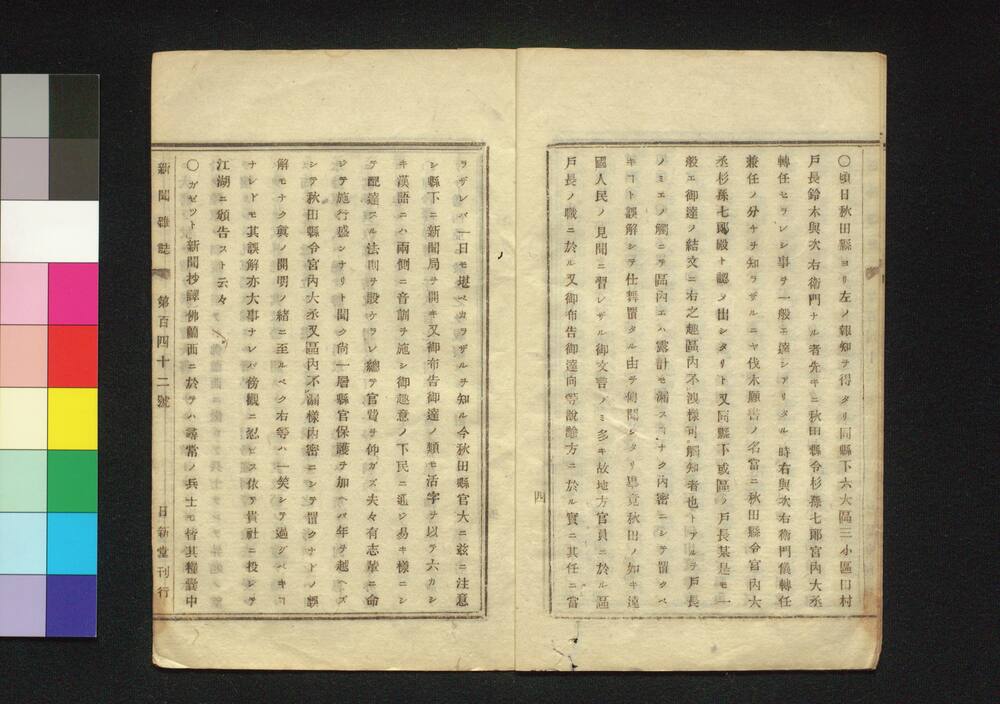 〇頃日秋田縣ヨリ左ノ報知ヲ得タリ同縣下六大區三小區口村
戸長鈴木與次右衛門ナル者先キニ秋田縣令杉孫七郎宮内大丞
轉任セラレシ事ヲ一般エ達シアリタル時右與次右衛門儀轉任
兼任ノ分キヲ知ラザルニヤ伐木願書ノ名當ニ秋田縣令宮内大
丞杉孫七郎殿ト認メ出シタリト又同縣下或區ノ戸長某是モ一
般エ御達シノ結文ニ右之趣區内不洩樣可觸知者也トアルヲ戸長
ノミエノ觸ニテ區内エハ露計モ漏スコナク内密ニシテ置クベ
キコト誤解シテ仕舞置タル由ヲ傳聞シタリ畢竟秋田ノ如キ遠
國人民ノ見聞ニ習レザル御文言ノミ多キ故地方官員ニ於ル區
戸長ノ職ニ於ル又御布告御達向等說諭方ニ於ル實ニ其任ニ當
四
ラザレバ一日モ堪ベカラザルヲ知ル今秋田縣官大ニ玆ニ注意
シ縣下ニ新聞局ヲ開キ又御布告御達ノ類モ活字ヲ以テ六カシ
キ漢語ニハ兩側ニ音訓ヲ施シ御趣意ノ下民ニ通シ易キ樣ニシ
テ配達スル法則ヲ設ケラレ總テ官費ヲ仰ガズ夫々有志輩ニ命
ジテ施行盛ンナリト聞ク尙一層縣官保護ヲ加ヘバ年ヲ越ヘズ
シテ秋田縣令宮内大丞又區内不漏樣内密ニシテ置クナドノ誤
解モナク眞ノ開明ノ緒ニ至ルベク右等ハ一笑シテ過グベキコ
ナレドモ其誤解亦大事ナレバ傍觀ニ忍ビス依テ貴社ニ投シテ
江湖ニ頒告スト云々
〇ガゼット新聞抄譯佛蘭西ニ於テハ尋常ノ兵士モ皆其糧嚢中
新聞雜誌 第百四十二號 日新堂刊行